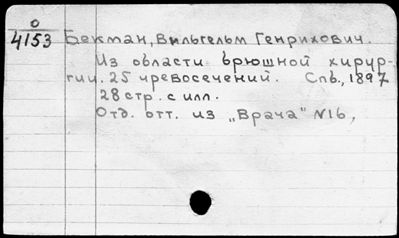 0
4153
Бекман, Вильгельм Генрихович.
Из области брюшной хирур-
гии. 25 чревосечений. Спб., 1897
28 стр. с илл.
Отд. отт. из „Врача" №16,